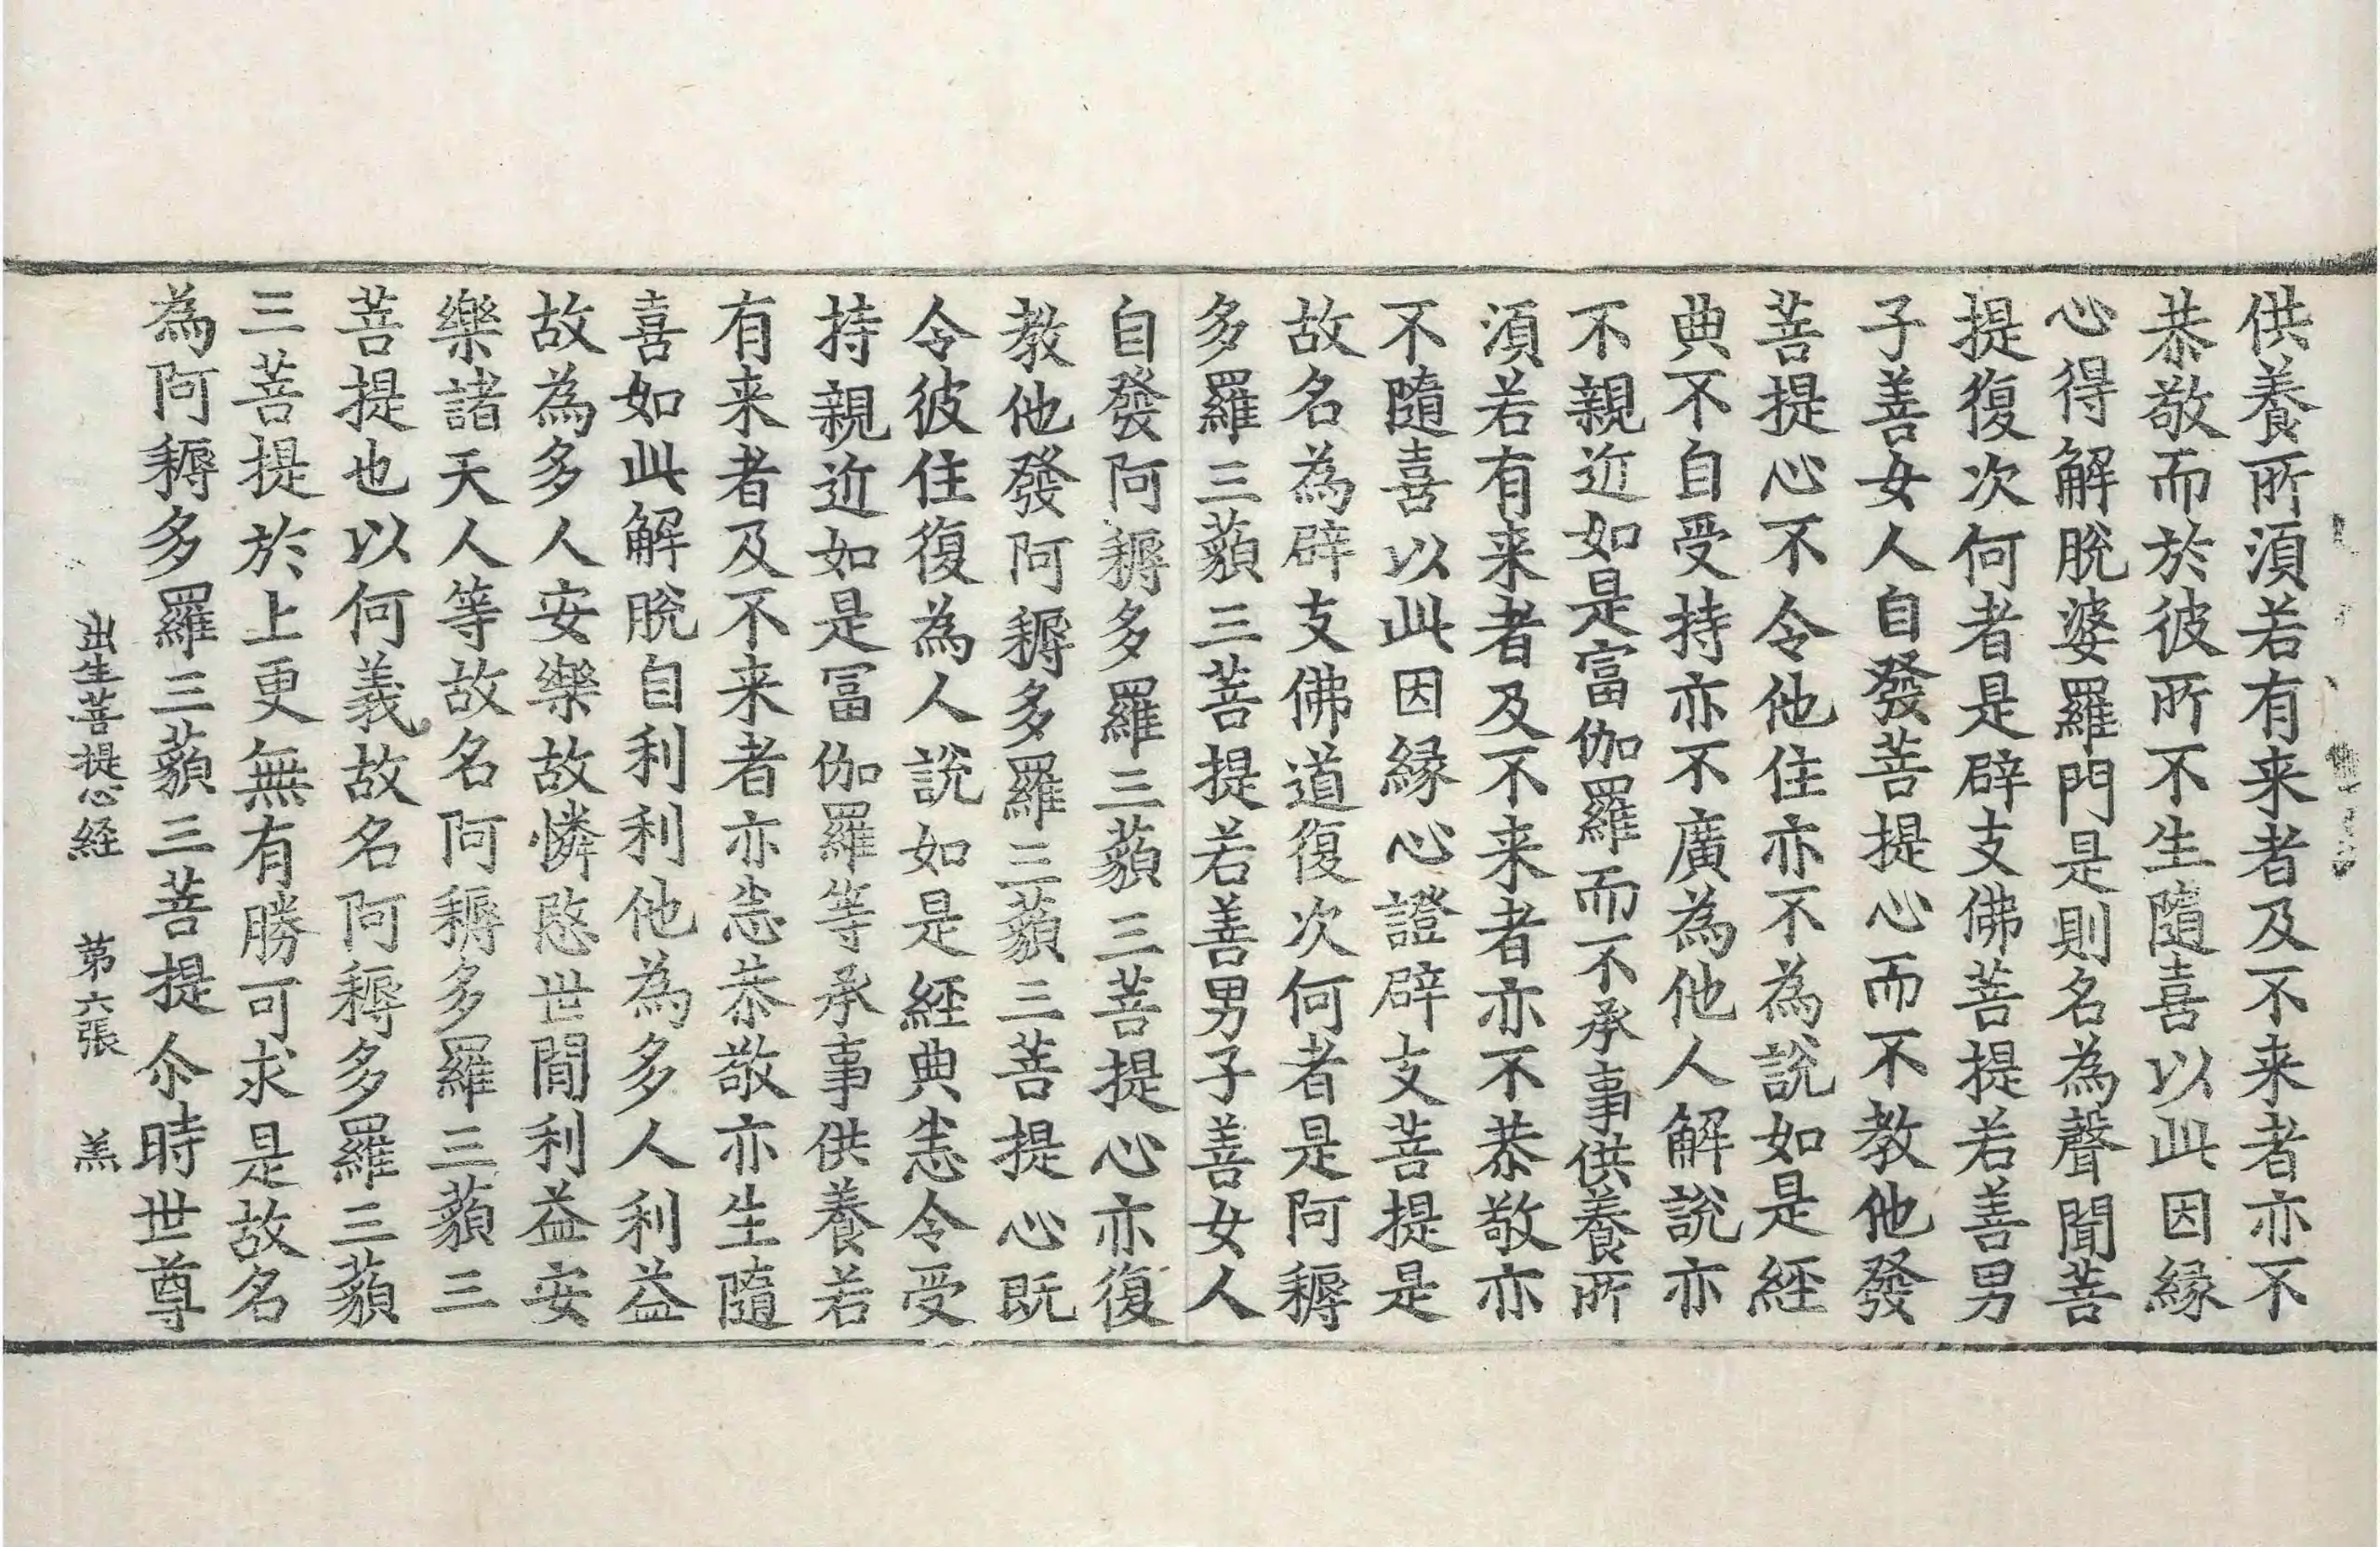 供養所湏若有来者及不来者亦不
恭敬而於彼所不生隨喜以此因緣
心得解脫婆羅門是則名為聲聞菩
提復次何者是辟支佛菩提若善男
子善女人自發菩提心而不教他發
菩提心不令他住亦不為說如是經
典不自受持亦不廣為他人解說亦
不親近如是富伽羅而不承事供養所
湏若有来者及不来者亦不恭敬亦
不隨喜以此因緣心證辟支菩提是
故名為辟支佛道復次何者是阿耨
多羅三藐三菩提若善男子善女人
自發阿耨多羅三藐三菩提心亦復
教他發阿耨多羅三藐三菩提心既
令彼住復為人說如是經典恙令受
持親近如是冨伽羅等承事供養若
有来者及不来者亦恙恭敬亦生隨
喜如此解脫自利利他為多人利益
故為多人安樂故憐愍世間利益安
樂諸天人等故名阿耨多羅三藐三
菩提也以何義故名阿耨多羅三藐
三菩提於上更無有勝可求是故名
為阿耨多羅三藐三菩提尒時世尊
出生菩提心経　第六張　羔